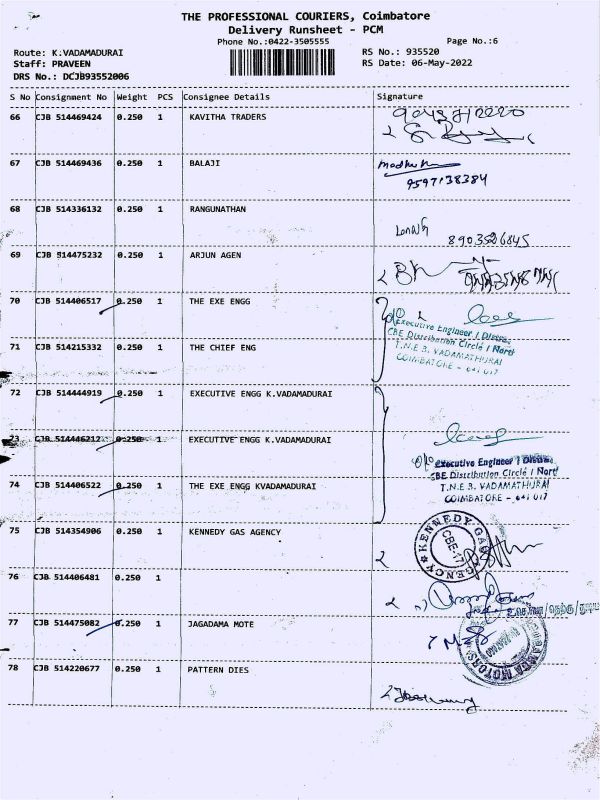 THE PROFESSIONAL COURIERS, Coimbatore
Delivery Runsheet - PCM
Phone No.:0422-3505555
Page No.:6
Route: K.VADAMADURAI
RS No.: 935520
Staff: PRAVEEN
RS Date: 06-May-2022
DRS No.: DCJB93552006
S No Consignment No Weight PCS Consignee Details Signature
66 CJB 514469424 0.250 1 KAVITHA TRADERS
67 CJB 514469436 0.250 1 BALAJI
9597138384
68 CJB 514336132 0.250 1 RANGUNATHAN
8903526845
69 CJB 514475232 0.250 1 ARJUN AGEN
70 CJB 514406517 0.250 1 THE EXE ENGG
Executive Engineer / Distn.
CBE Distribution Circle / North
71 CJB 514215332 0.250 1 THE CHIEF ENG
T.N.E B. VADAMATHURAI
COIMBATORE - 641 017
72 CJB 514444919 0.250 1 EXECUTIVE ENGG K.VADAMADURAI
73 CJB 514446212 0.250 1 EXECUTIVE ENGG K.VADAMADURAI
Executive Engineer / Distn.
CBE Distribution Circle / North
74 CJB 514406522 0.250 1 THE EXE ENGG KVADAMADURAI
T.N.E B. VADAMATHURAI
COIMBATORE - 641 017
75 CJB 514354906 0.250 1 KENNEDY GAS AGENCY
KENNEDY GAS AGENCY
CBE-17
76 CJB 514406481 0.250 1
77 CJB 514475082 0.250 1 JAGADAMA MOTE
MOTORS
78 CJB 514220677 0.250 1 PATTERN DIES